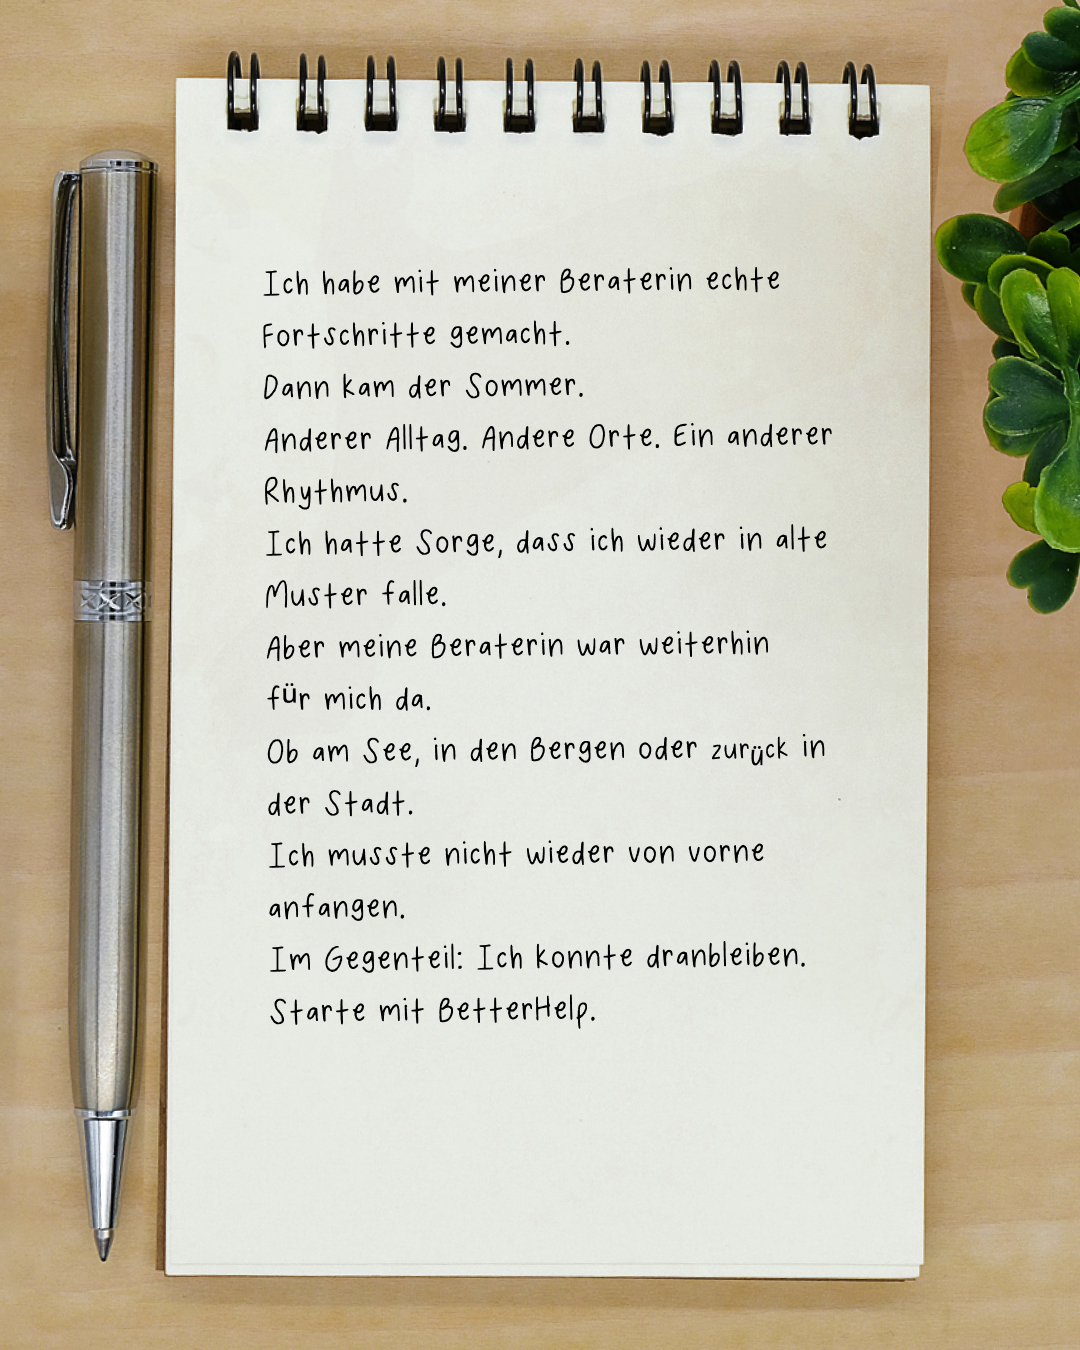 Ich habe mit meiner Beraterin echte
Fortschritte gemacht.
Dann kam der Sommer.
Anderer Alltag. Andere Orte. Ein anderer
Rhythmus.
Ich hatte Sorge, dass ich wieder in alte
Muster falle.
Aber meine Beraterin war weiterhin
für mich da.
Ob am See, in den Bergen oder zurück in
der Stadt.
Ich musste nicht wieder von vorne
anfangen.
Im Gegenteil: Ich konnte dranbleiben.
Starte mit BetterHelp.